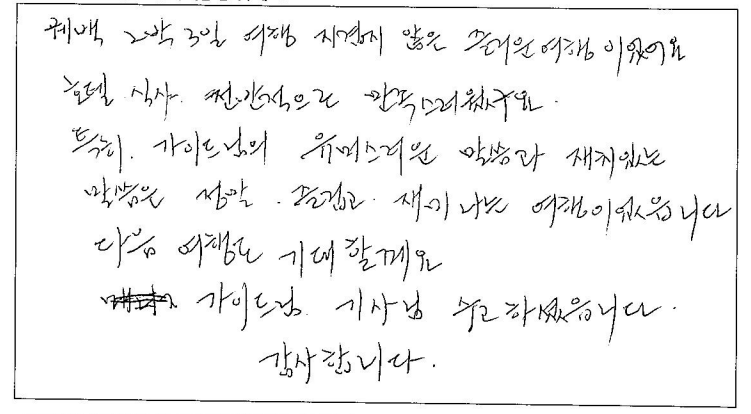 퀘벡 2박 3일 여행 지겹지 않은 즐거운 여행이었어요
호텔. 식사. 전반적으로 만족스러웠구요.
특히. 가이드님의 유머스러운 말씀과 재치있는
말씀은 정말. 즐겁고. 재미나는 여행이었습니다
다음 여행도 기대할께요
가이드님. 기사님 수고하셨습니다.
감사합니다.